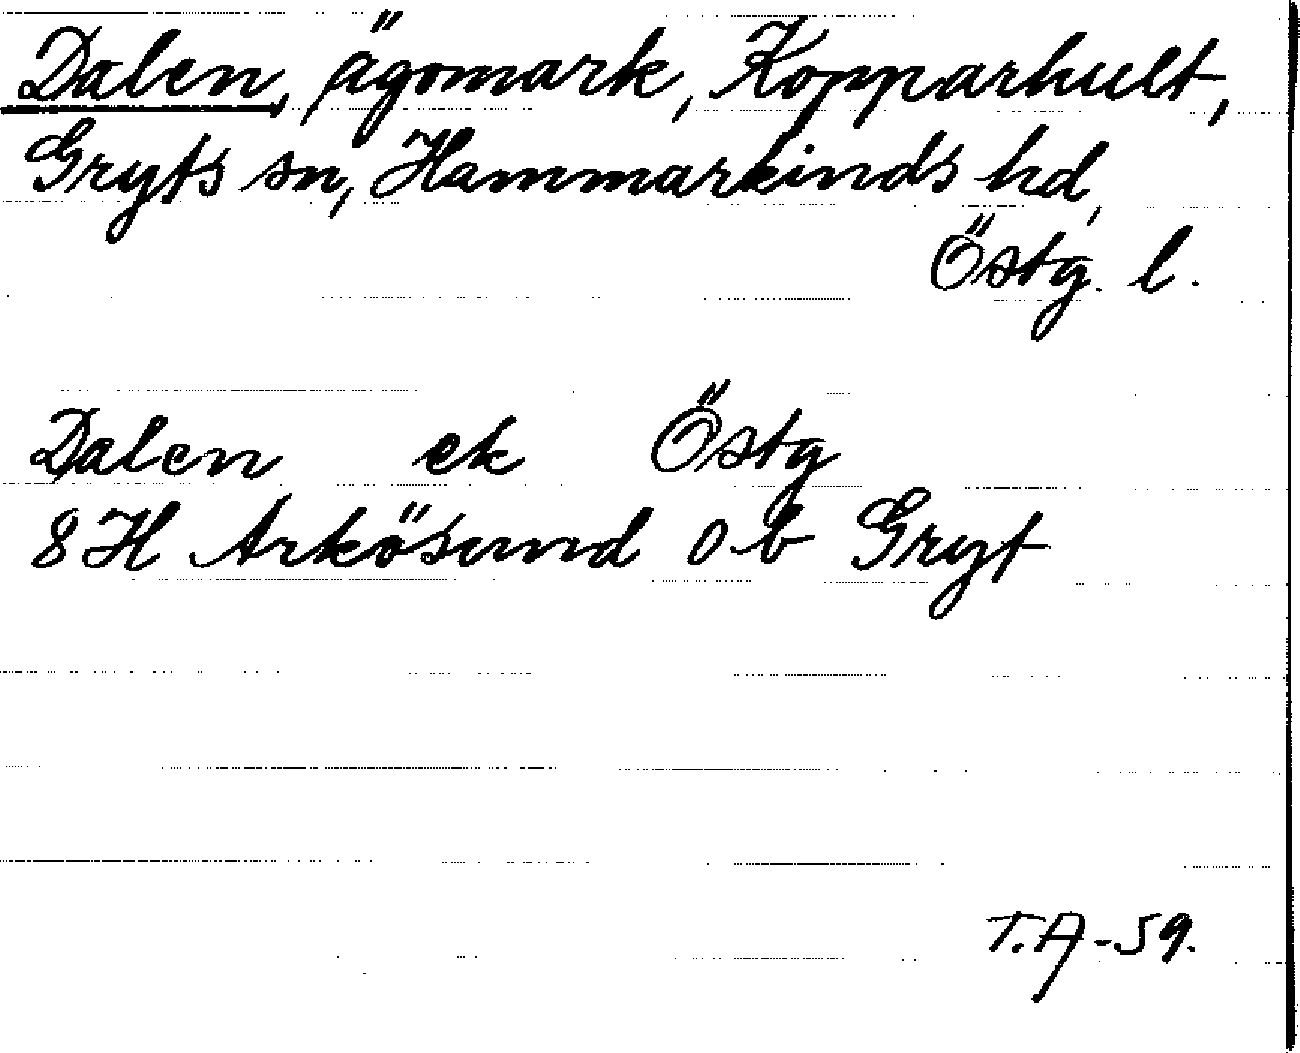 Dalen, ägomark, Kopparhult,
Gryts sn, Hammarkinds hd,
Östg. l.
Dalen ek Östg
8H Arkösund o b Gryt
T.A-59.